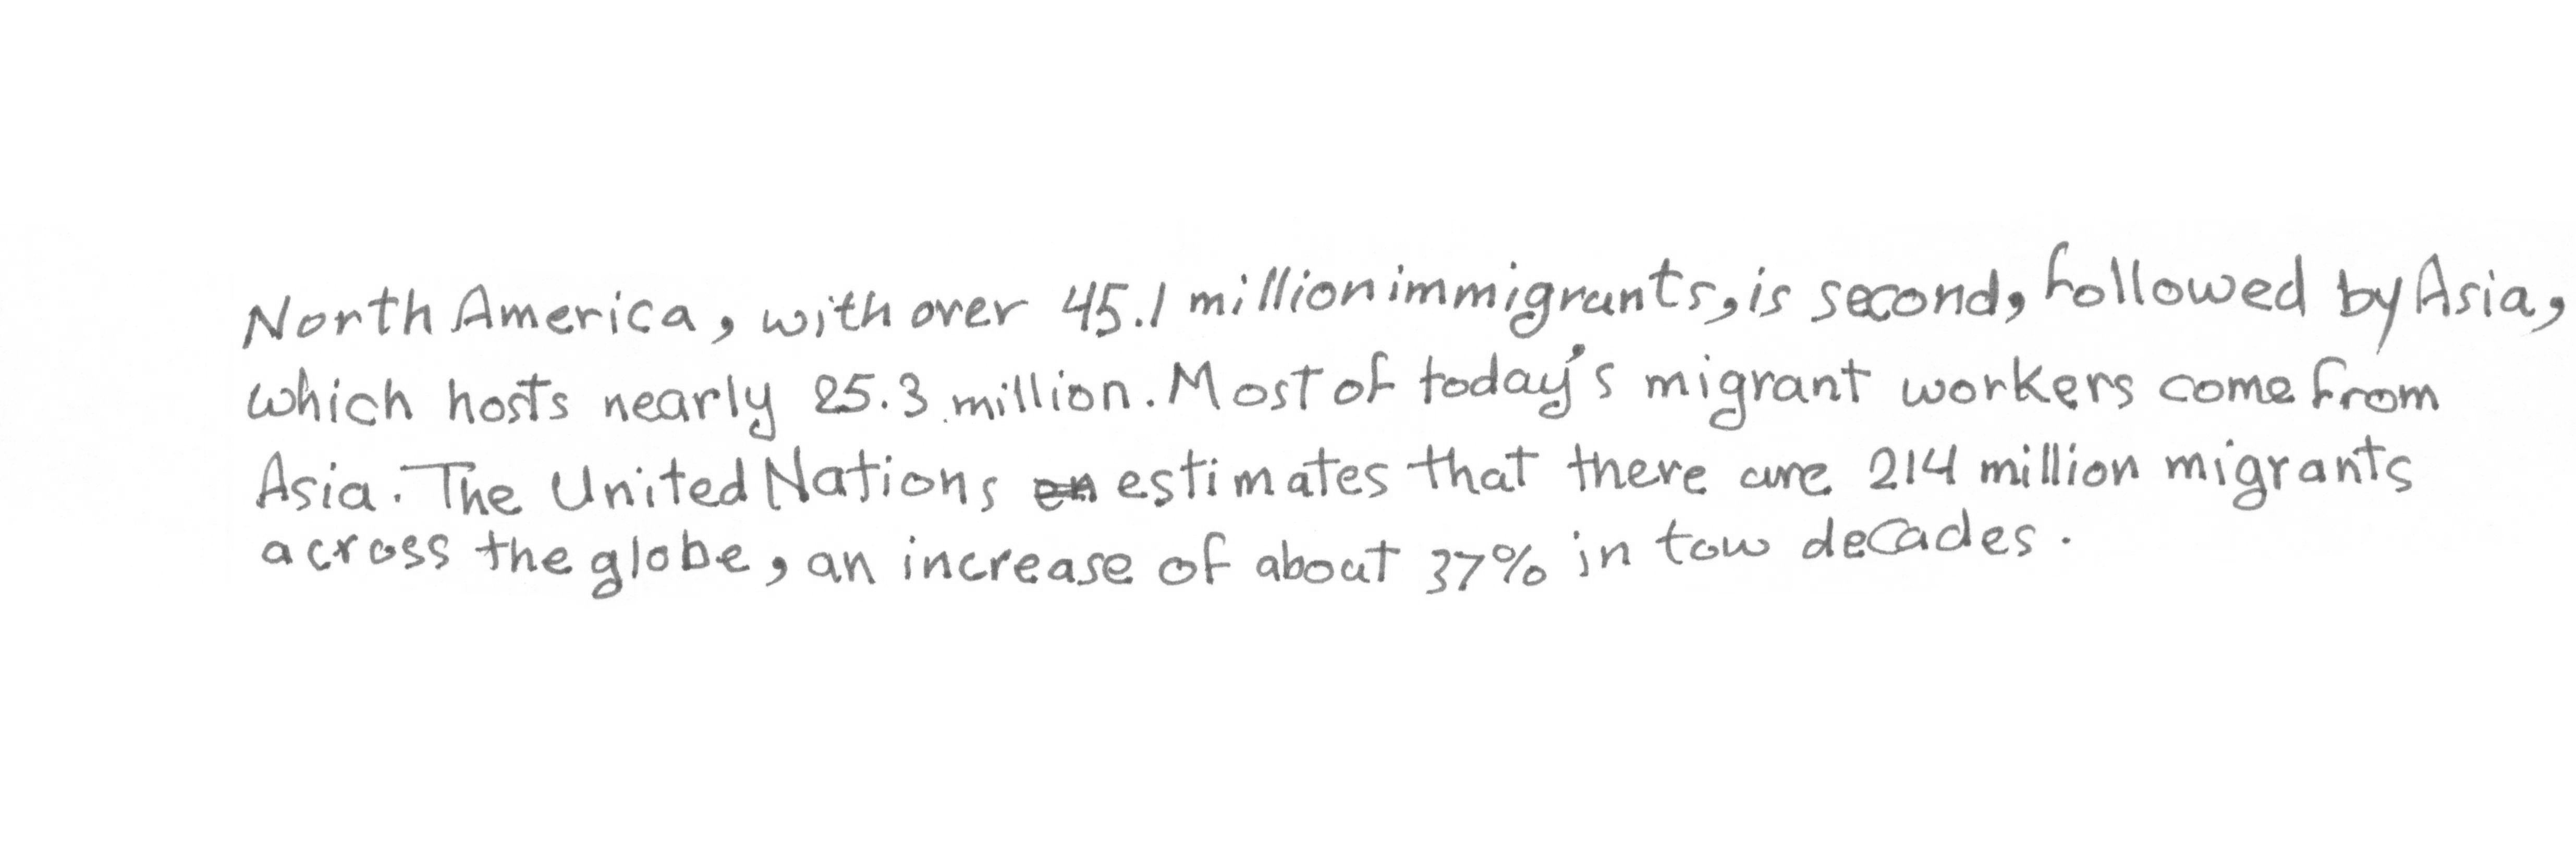 North America, with over 45.1 million immigrants, is second, followed by Asia,
which hosts nearly 25.3 million. Most of today's migrant workers come from
Asia. The United Nations estimates that there are 214 million migrants
across the globe, an increase of about 37% in tow decades.